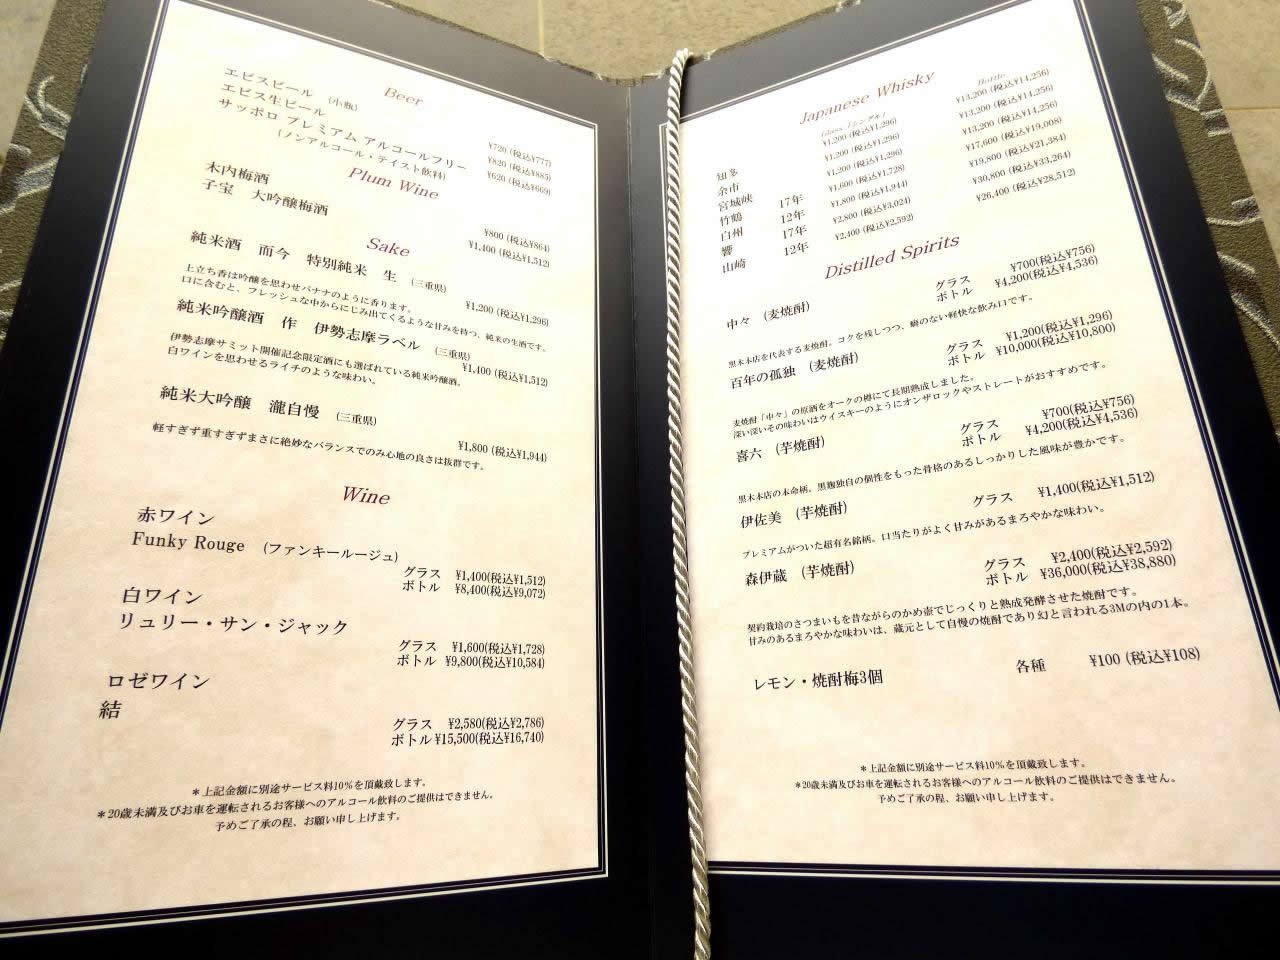 Beer
エビスビール (小瓶) ¥720 (税込¥777)
エビス生ビール ¥820 (税込¥885)
サッポロ プレミアム アルコールフリー ¥620 (税込¥669)
(ノンアルコール・テイスト飲料)
Plum Wine
木内梅酒 ¥800 (税込¥864)
子宝 大吟醸梅酒 ¥1,400 (税込¥1,512)
Sake
純米酒 而今 特別純米 生 (三重県) ¥1,200 (税込¥1,296)
上立ち香は吟醸を思わせバナナのように香ります。
口に含むと、フレッシュな中からにじみ出てくるような甘みを持つ、純米の生酒です。
純米吟醸酒 作 伊勢志摩ラベル (三重県) ¥1,400 (税込¥1,512)
伊勢志摩サミット開催記念限定酒にも選ばれている純米吟醸酒。
白ワインを思わせるライチのような味わい。
純米大吟醸 瀧自慢 (三重県) ¥1,800 (税込¥1,944)
軽すぎず重すぎずまさに絶妙なバランスでのみ心地の良さは抜群です。
Wine
赤ワイン
Funky Rouge (ファンキールージュ)
グラス ¥1,400(税込¥1,512)
ボトル ¥8,400(税込¥9,072)
白ワイン
リュリー・サン・ジャック
グラス ¥1,600(税込¥1,728)
ボトル ¥9,800(税込¥10,584)
ロゼワイン
結
グラス ¥2,580(税込¥2,786)
ボトル ¥15,500(税込¥16,740)
＊上記金額に別途サービス料10％を頂戴致します。
＊20歳未満及びお車を運転されるお客様へのアルコール飲料のご提供はできません。
予めご了承の程、お願い申し上げます。
Japanese Whisky
Glass「シングル」 Bottle
知多 ¥1,200 (税込¥1,296) ¥13,200 (税込¥14,256)
余市 ¥1,200 (税込¥1,296) ¥13,200 (税込¥14,256)
宮城峡 ¥1,200 (税込¥1,296) ¥13,200 (税込¥14,256)
竹鶴 17年 ¥1,600 (税込¥1,728) ¥17,600 (税込¥19,008)
白州 12年 ¥1,800 (税込¥1,944) ¥19,800 (税込¥21,384)
響 17年 ¥2,800 (税込¥3,024) ¥30,800 (税込¥33,264)
山崎 12年 ¥2,400 (税込¥2,592) ¥26,400 (税込¥28,512)
Distilled Spirits
中々 (麦焼酎)
グラス ¥700(税込¥756)
ボトル ¥4,200(税込¥4,536)
黒木本店を代表する麦焼酎。コクを残しつつ、癖のない軽快な飲み口です。
百年の孤独 (麦焼酎)
グラス ¥1,200(税込¥1,296)
ボトル ¥10,000(税込¥10,800)
麦焼酎「中々」の原酒をオークの樽にて長期熟成しました。
深い深いその味わいはウイスキーのようにオンザロックやストレートがおすすめです。
喜六 (芋焼酎)
グラス ¥700(税込¥756)
ボトル ¥4,200(税込¥4,536)
黒木本店の本命柄。黒麹独自の個性をもった骨格のあるしっかりした風味が豊かです。
伊佐美 (芋焼酎) グラス ¥1,400(税込¥1,512)
プレミアムがついた超有名銘柄。口当たりがよく甘みがあるまろやかな味わい。
森伊蔵 (芋焼酎)
グラス ¥2,400(税込¥2,592)
ボトル ¥36,000(税込¥38,880)
契約栽培のさつまいもを昔ながらのかめ壺でじっくりと熟成発酵させた焼酎です。
甘みのあるまろやかな味わいは、蔵元として自慢の焼酎であり幻と言われる3Mの内の1本。
レモン・焼酎梅3個 各種 ¥100 (税込¥108)
＊上記金額に別途サービス料10％を頂戴致します。
＊20歳未満及びお車を運転されるお客様へのアルコール飲料のご提供はできません。
予めご了承の程、お願い申し上げます。